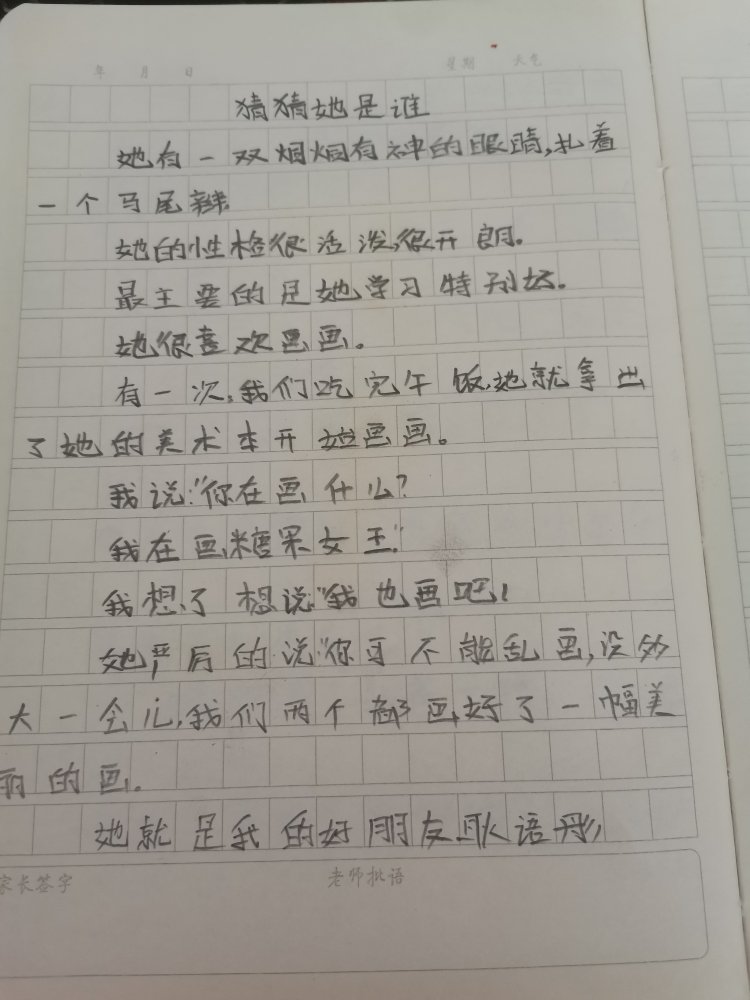 年 月 日 星期 天气
猜猜她是谁
她有一双炯炯有神的眼睛,扎着
一个马尾辫.
她的性格很活泼,很开朗.
最主要的是她学习特别好.
她很喜欢画画.
有一次,我们吃完午饭,她就拿出
了她的美术本开始画画.
我说:"你在画什么?
我在画糖果女王."
我想了想说:"我也画吧!
她严后的说:"你可不能乱画,没多
大一会儿,我们两个都画好了一幅美
丽的画.
她就是我的好朋友耿语彤!
家长签字 老师批语